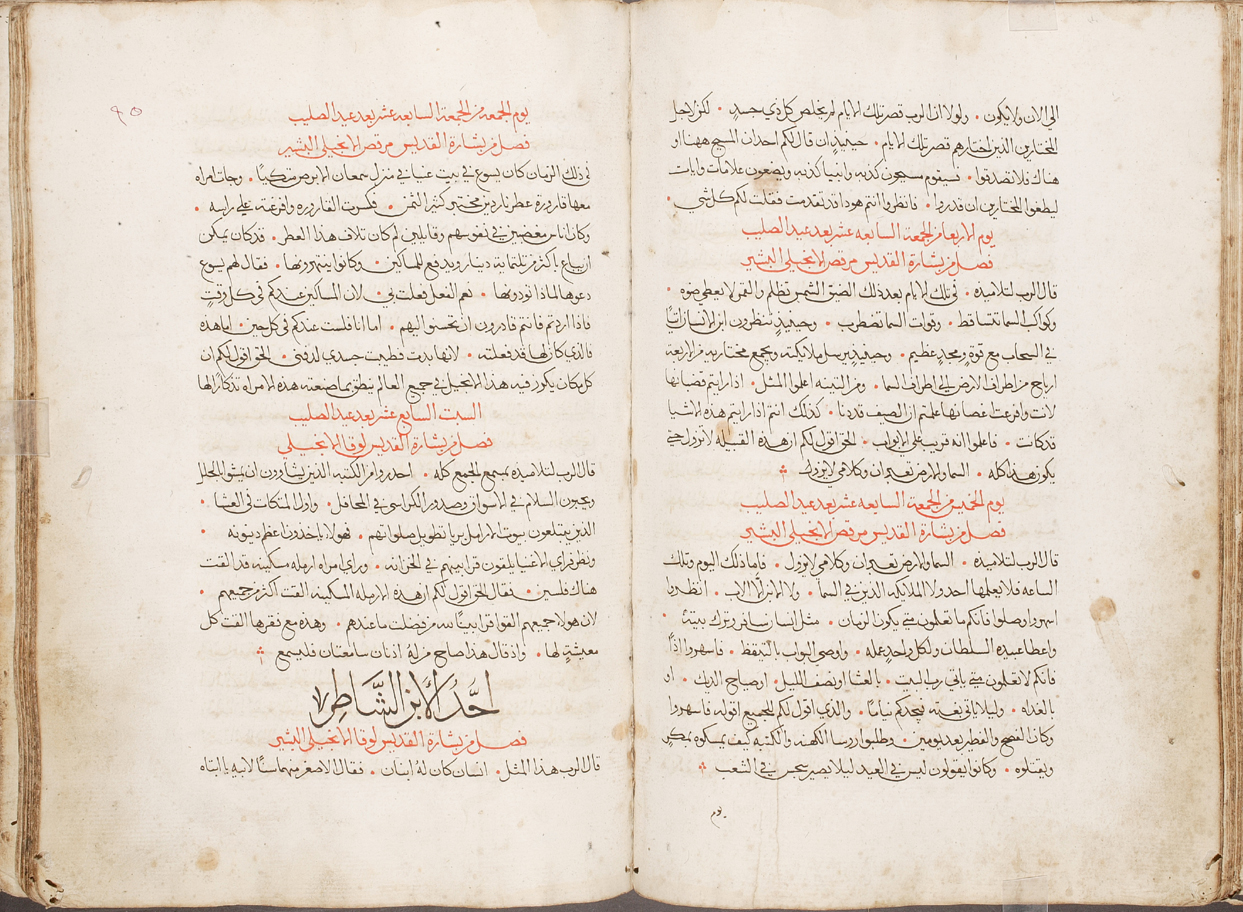 الي الان ولا يكون • ولولا ان الرب قصر تلك الايام لم يخلص كل ذي جسد • لكن لاجل
المختارين الذين اختارهم قصر تلك الايام • حينيذ ان قال لكم احد ان المسيح ههنا او
هناك فلا تصدقوا • فسيقوم مسيحون كذبه وانبيا كذبه ويصنعون علامات وايات
ليطغوا المختارين ان قدروا • فانظروا انتم هوذا قد تقدمت فقلت لكم كل شي •
يوم الاربعا من الجمعة السابعه عشر بعد عيد الصليب
فصل من بشارة القديس مرقص الانجيلي البشير
قال الرب لتلاميذه • في تلك الايام بعد ذلك الضيق الشمس تظلم والقمر لا يعطي ضوه •
وكواكب السما تتساقط • وقوات السما تضطرب • وحينيذ تنظرون ابن الانسان اتيا
في السحاب مع قوة ومجد عظيم • وحينيذ يرسل ملايكته ويجمع مختاريه من الاربعة
ارياح من اطراف الارض الي اطراف السما • ومن التينه اعلموا المثل • اذا رايتم قضبانها
لانت وافرعت اغصانها علمتم ان الصيف قد دنا • كذلك انتم اذا رايتم هذه الاشيا
قد كانت • فاعلموا انه قريب علي الابواب • الحق اقول لكم ان هذه القبيله لا تزول حتي
يكون هذا كله • السما والارض تعبران وكلامي لا يزول
يوم الخميس من الجمعة السابعه عشر بعد عيد الصليب
فصل من بشارة القديس مرقص الانجيلي البشير
قال الرب لتلاميذه • السما والارض تعبران وكلامي لا يزول • فاما ذلك اليوم وتلك
الساعه فلا يعلمها احد ولا الملايكه الذين في السما • ولا الابن الا الاب • انظروا
اسهروا وصلوا فانكم ما تعلمون متي يكون الزمان • مثل انسان سافر وترك بيته •
واعطا عبيده السلطان ولكل واحد عمله • واوصي البواب بالتيقظ • فاسهروا اذا
فانكم لا تعلمون متي ياتي رب البيت • بالعشا او نصف الليل • او صياح الديك • او
بالغداه • وليلا ياتي بغته فيجدكم نياما • والذي اقول لكم للجميع اقوله فاسهروا
وكان الفصح والفطير بعد يومين • وطلبوا روسا الكهنه والكتبه كيف يمسكوه بمكر
ويقتلوه • وكانوا يقولون ليس في العيد ليلا يصير سجس في الشعب
يوم
٩٥
يوم الجمعه من الجمعة السابعه عشر بعد عيد الصليب
فصل من بشارة القديس مرقص الانجيلي البشير
في ذلك الزمان كان يسوع في بيت عنيا في منزل سمعان الابرص متكيا • وجات امراه
معها قارورة عطر ناردين مختبر كثير الثمن • فكسرت القاروره وافرغته علي راسه •
وكان اناس مغضبين في نفوسهم وقايلين لم كان تلاف هذا العطر • قد كان يمكن
ان يباع باكثر من ثلثماية دينار ويدفع للمساكين • وكانوا ينتهرونها • فقال لهم يسوع
دعوها لماذا توذونها • نعم الفعل فعلت بي • لان المساكين عندكم في كل وقت
فاذا اردتم فانتم قادرون ان تحسنوا اليهم • اما انا فلست عندكم في كل حين • اما هذه
فالذي كان لها قد فعلته • لانها بدت فطيبت جسدي لدفني • الحق اقول لكم ان
كل مكان يكون فيه هذا الانجيل في جميع العالم ينطق بما صنعته هذه الامراه تذكارا لها
السبت السابع عشر بعد عيد الصليب
فصل من بشارة القديس لوقا الانجيلي
قال الرب لتلاميذه بمسمع المجمع كله • احذروا من الكتبه الذين يشاوون ان يمشوا بالحلل
ويحبون السلام في الاسواق وصدور الكراسي في المحافل • واول المتكات في العشا •
الذين يبتلعون بيوت الارامل بريا تطويل صلواتهم • فهولا ياخذون اعظم دينونه •
ونظر فراي الاغنيا يلقون قرابينهم في الخزانه • وراي امراه ارمله مسكينه قد القت
هناك فلسين • فقال الحق اقول لكم ان هذه الارمله المسكينه القت اكثر من جميعهم •
لان هولا جميعهم القوا قرابينا لله من فضلت ما عندهم • وهذه مع فقرها القت كل
معيشة لها • واذ قال هذا صاح من له اذنان سامعتان فليسمع
احد الابن الشاطر
فصل من بشارة القديس لوقا الانجيلي البشير
قال الرب هذا المثل • انسان كان له ابنان • فقال الاصغر منهما سنا لابيه يا ابتاه